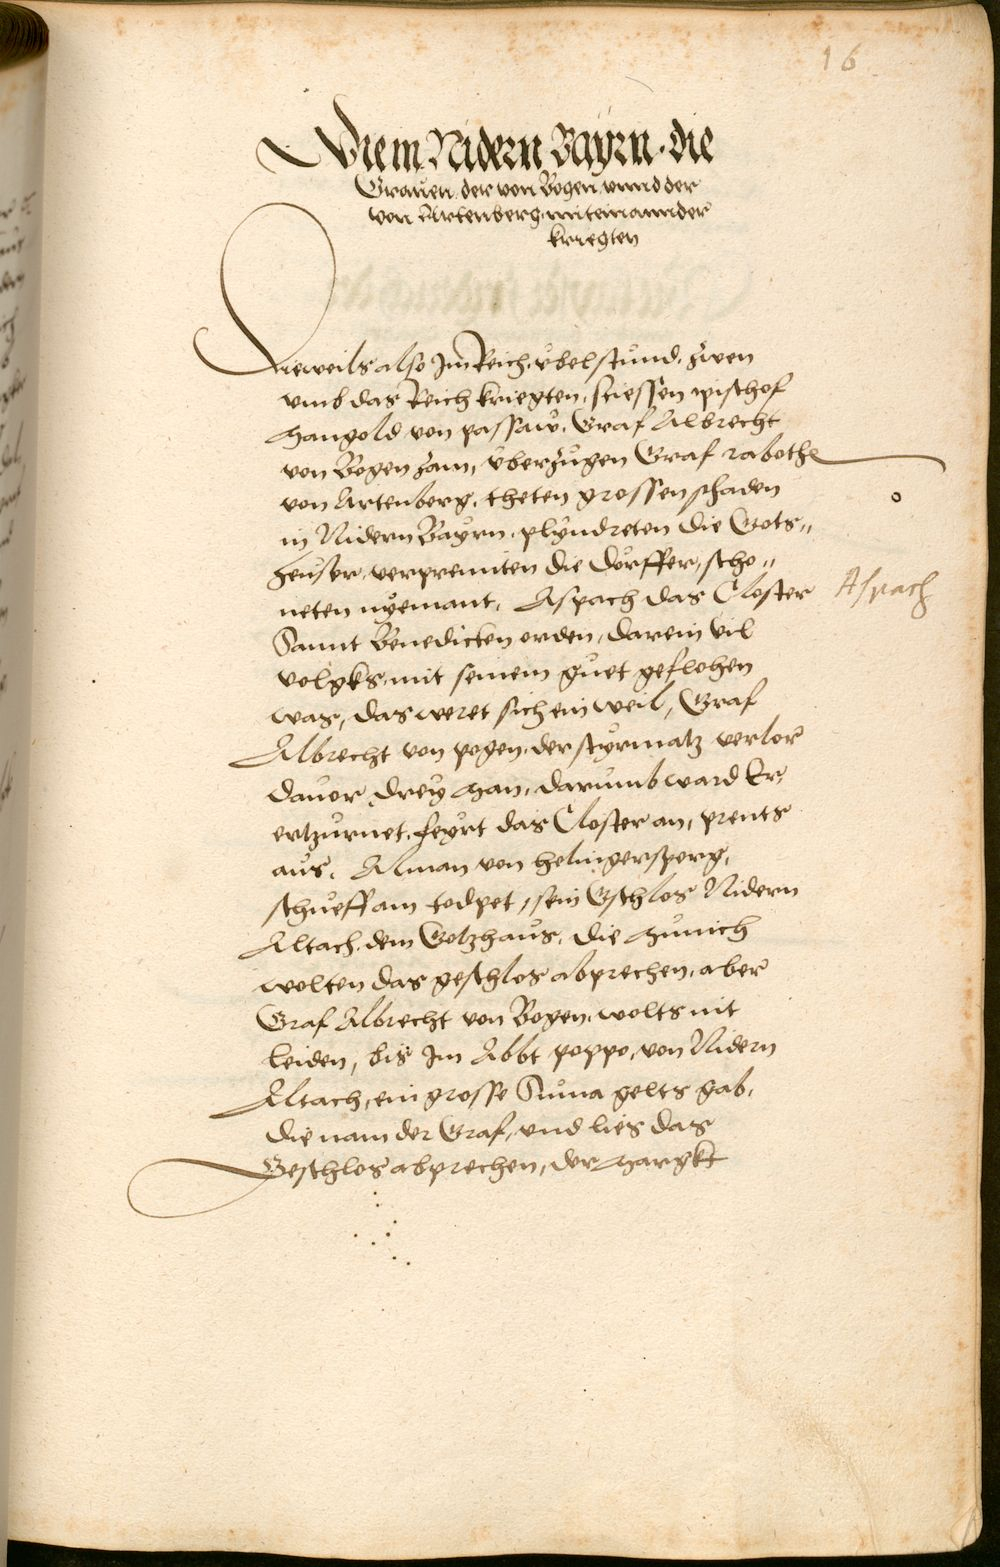 16
Wie in Nidern Bayrn die
Grauen der von Bogen vnnd der
von Artenberg miteinannder
kriegten
Dieweils also Im Reich v̈bel stuend, zwen
vmb das Reich kriegten, stiessen pischof
Mangold von passaw, Graf Albrecht
von Bogen zam, v̈berzugen Graf rabothe
von Artenberg, theten grossen schaden
in Nidern Bayrn, plyndreten die Gots„
heuser, verprennten die dörffer, scho„
neten nyemant, Aspach das Closter
Aspach
Sannt Benedicten orden, darein vil
volgks mit seinem guet geflohen
was, das weret sich ein weil, Graf
Albrecht von pogen der verlor
dauor drey Man, darumb ward Er
ertzurnet, das Closter an, prents
aus, Alman von
schueff am todpet, sein Gschlos Nidern
Altach dem Gotzhaus, die Münich
wolten das geschlos abprechen, aber
Graf Albrecht von Bogen, wolts nit
leiden, bis Im Abbt poppo, von Nidern
Altach, ein grosse Suma gelts gab,
die nam der Graf, vnd lies das
Geschlos abprechen, der Margkt